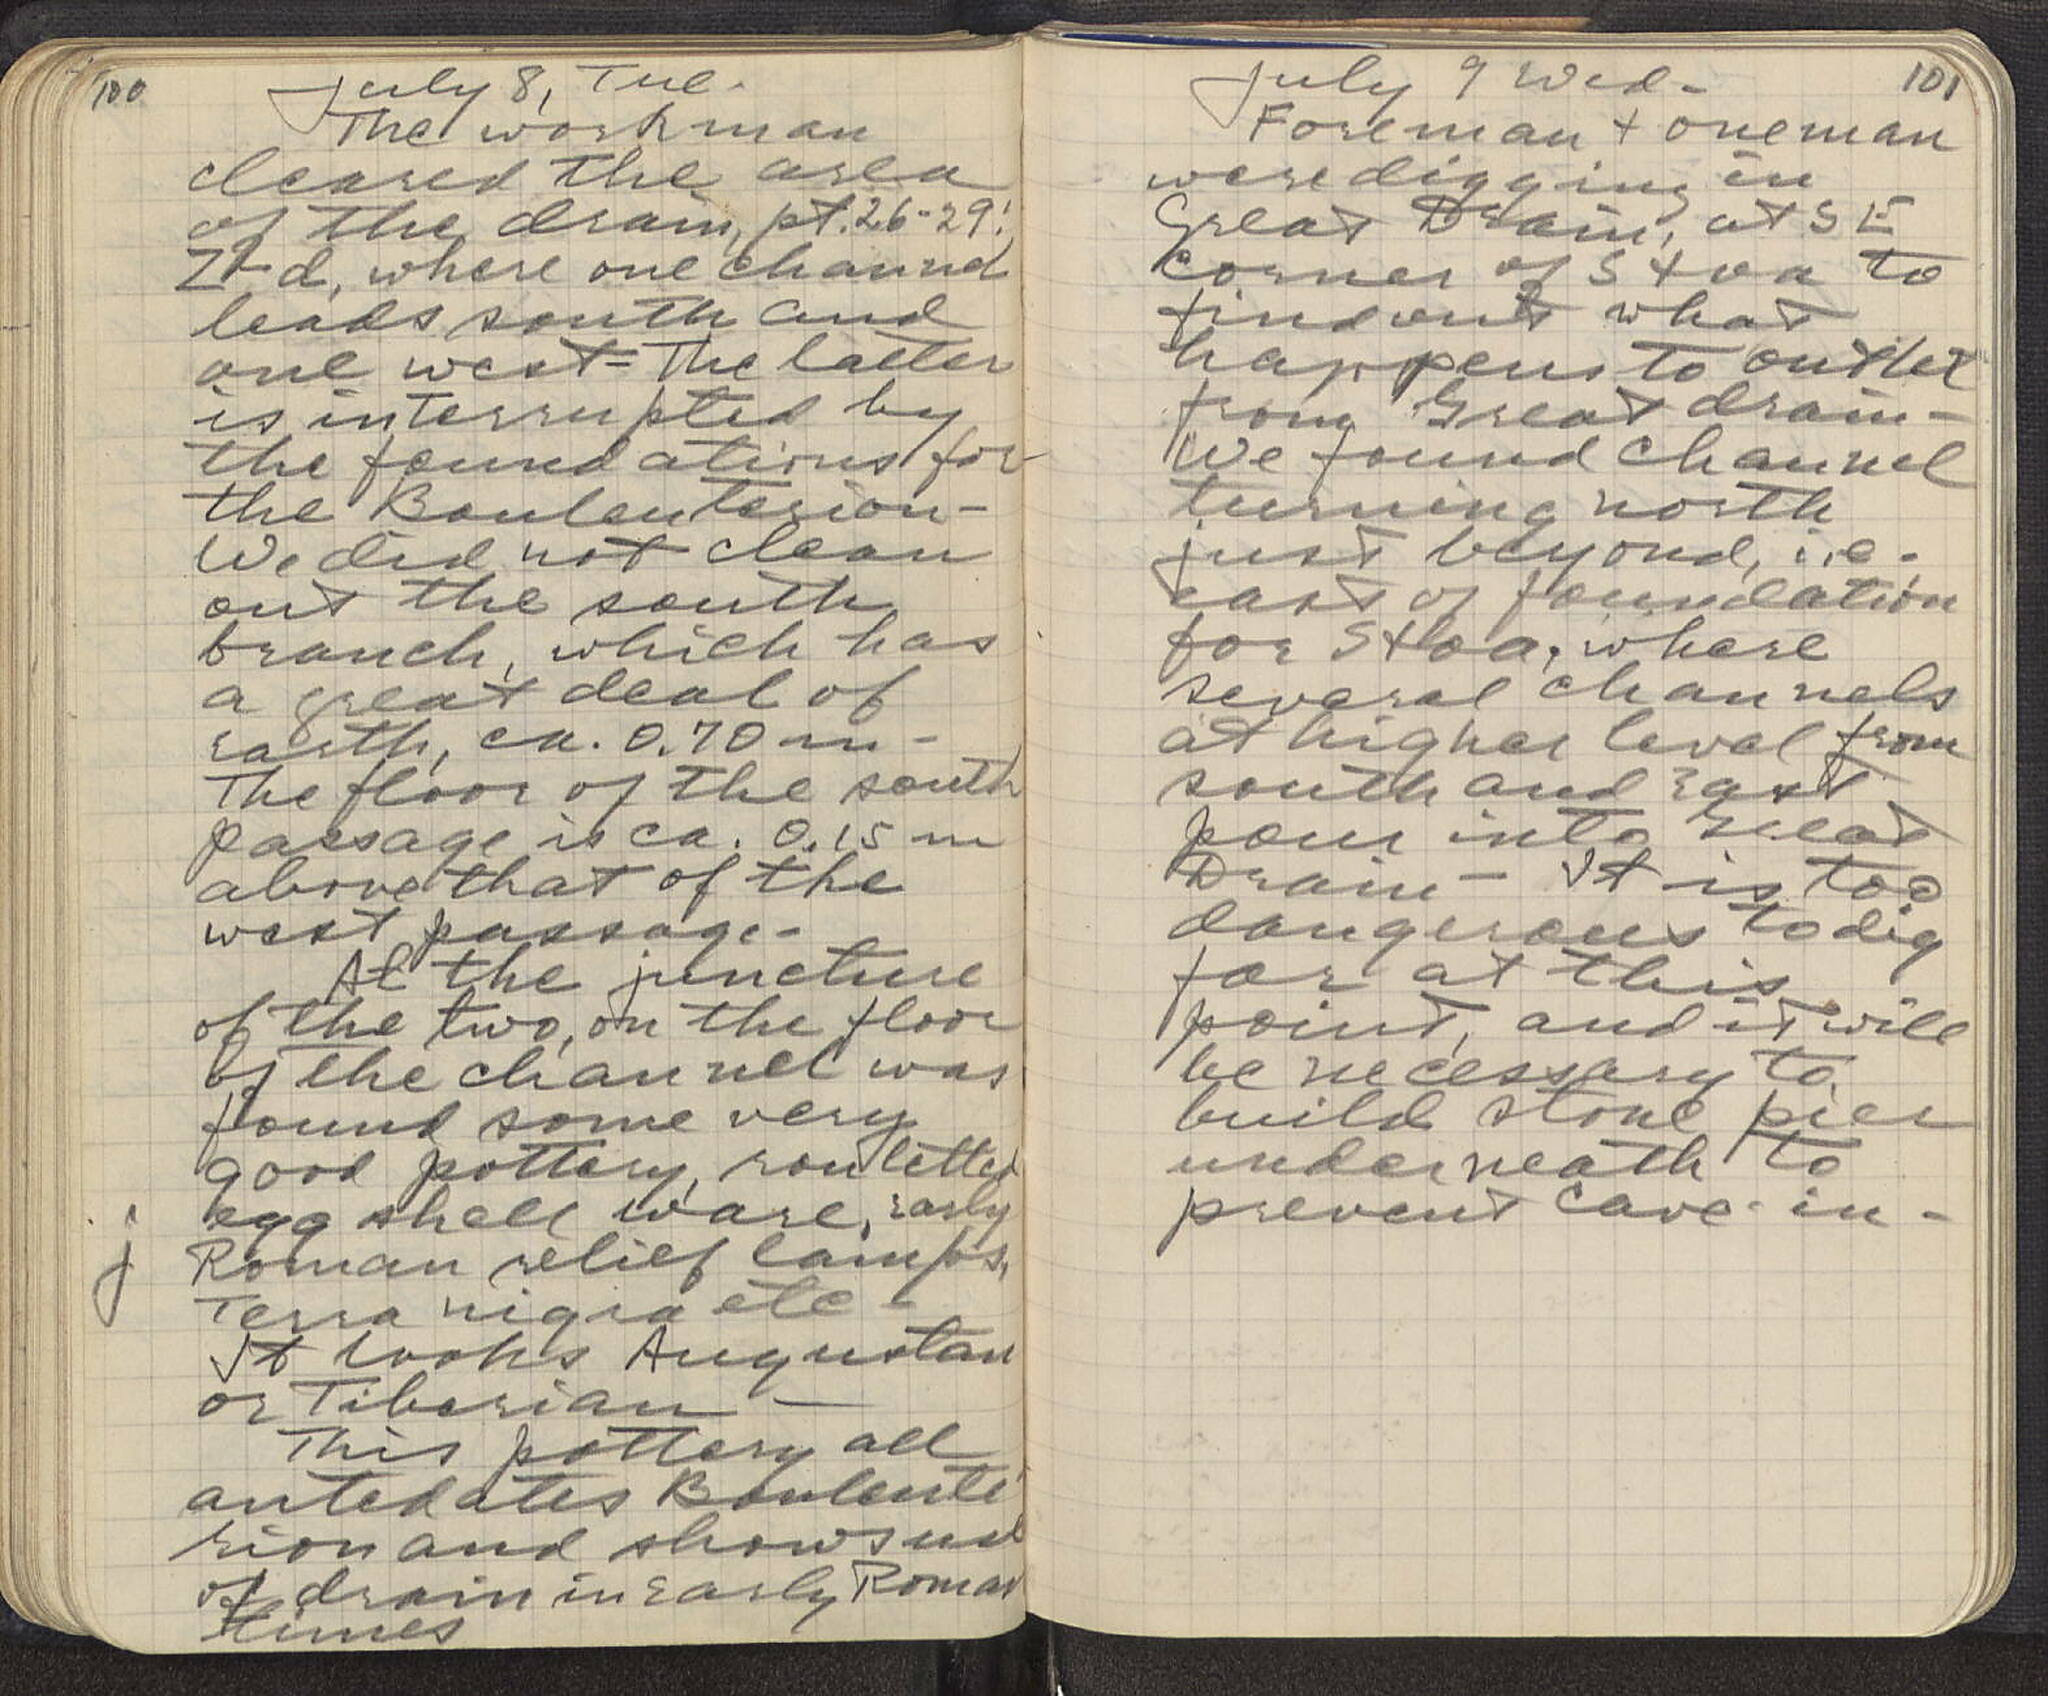 100
July 8, Tue.
The workman
cleared the area
of the drain, pt. 26-29:
Z-d, where one channel
leads south and
one west - The latter
is interrupted by
the foundations for
the Bouleuterion -
We did not clean
out the south
branch, which has
a great deal of
earth, ca. 0.70 m -
The floor of the south
passage is ca. 0.15 m
above that of the
west passage -
At the juncture
of the two, on the floor
of the channel was
found some very
good pottery, rouletted
egg shell ware, early
j
Roman relief lamps,
Terra nigra etc -
It looks Augustan
or Tiberian -
This pottery all
antedates Bouleute
rion and shows use
of drain in early Roman
times
101
July 9 Wed -
Foreman + one man
were digging in
Great Drain, at SE
corner of Stoa to
find out what
happens to outlet
from Great drain -
We found channel
turning north
just beyond, i.e.
east of foundation
for Stoa, where
several channels
at higher level from
south and east
pour into Great
Drain - It is too
dangerous to dig
far at this
point, and it will
be necessary to
build stone pier
underneath to
prevent cave-in -